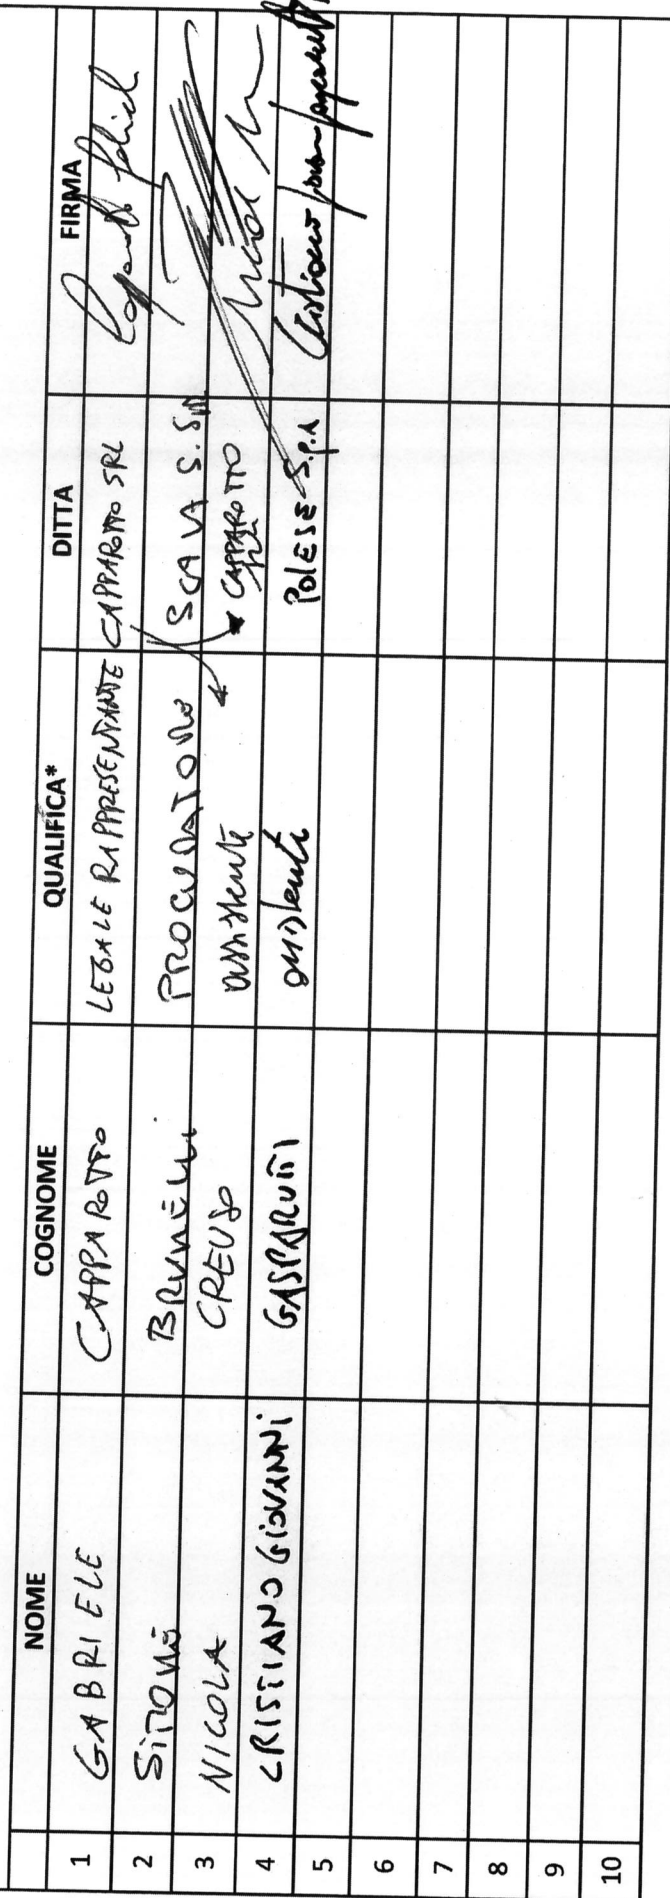 NOME COGNOME QUALIFICA* DITTA FIRMA
1 GABRIELE CAPPAROTTO LEGALE RAPPRESENTANTE CAPPAROTTO SRL
2 SIMONE BRUNELLI PROCURATORE SCAVI S.
3 NICOLA CREUSO assistente CAPPAROTTO
4 CRISTIANO GIOVANNI GASPARUTTI assistente POLESE S.p.A
5
6
7
8
9
10